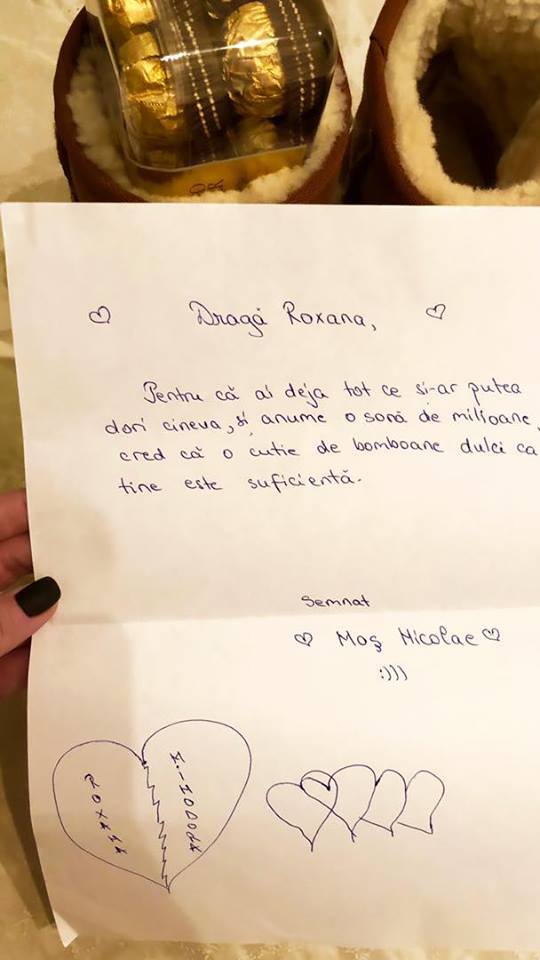 Dragă Roxana,
Pentru că ai deja tot ce si-ar putea
dori cineva, și anume o soră de milioane,
cred că o cutie de bomboane dulci ca
tine este suficientă.
semnat
Moș Nicolae
:)))
ROXANA